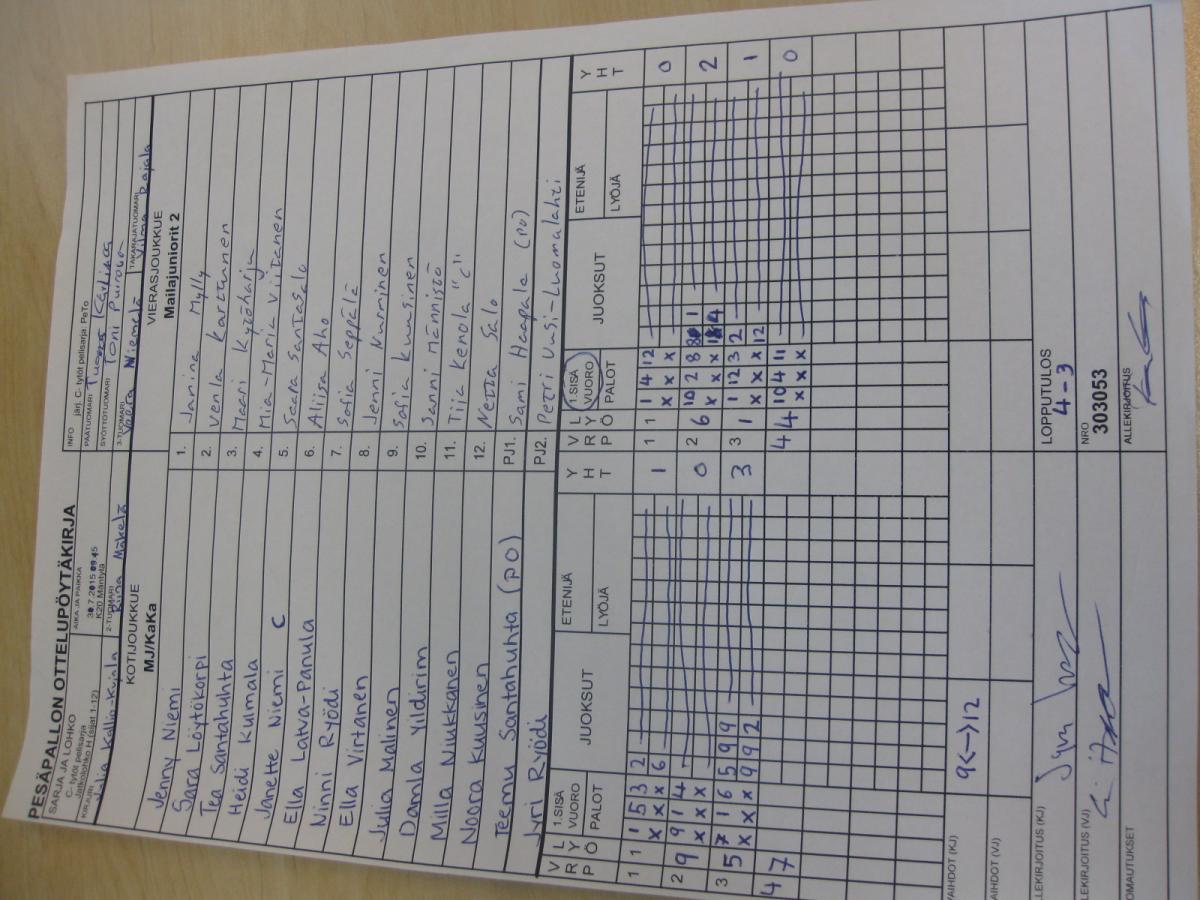 PESÄPALLON OTTELUPÖYTÄKIRJA
SARJA JA LOHKO
C- tytöt pelisarja
Jatkolohko H (sijat 1-12)
AIKA JA PAIKKA
30.7.2015 09:45
K20 Mäntylä
INFO järj. C- tytöt pelisarja. PeTo
PÄÄTUOMARI
SYÖTTÖTUOMARI Toni
KIRJURI Kallio-Kujala
2-TUOMARI Mäkelä
3-TUOMARI Veera Niemelä
TAKARAJATUOMARI Vilma Rajala
KOTIJOUKKUE
MJ/KaKa
VIERASJOUKKUE
Mailajuniorit 2
Jenny Niemi 1. Janina Mylly
Sara Löytökorpi 2. Venla Karttunen
Tea Santahuhta 3. Maari Kytöharja
Heidi Kulmala 4. Mia-Maria Viitanen
Janette Niemi C 5. Saara Santasalo
Ella Latva-Panula 6. Aliisa Aho
Ninni Ryödi 7. Sofia Seppälä
Ella Virtanen 8. Jenni Nurminen
Julia Malinen 9. Sofia Kuusinen
Damla Yildirim 10. Sanni Männistö
Milla Niukkanen 11. Tiia Kenola "C"
Noora Kuusinen 12. Netta Salo
Teemu Santahuhta (PO) PJ1. Sami Haapala (PO)
Jyri Ryödi PJ2. Petri Uusi-Luomalahti
V R LYÖ P 1.SISÄ VUORO PALOT JUOKSUT ETENIJÄ LYÖJÄ YHT V R LYÖ P 1.SISÄ VUORO PALOT JUOKSUT ETENIJÄ LYÖJÄ YHT
1 1 1 5 3 2 1 1 1 4 12
x x x 6 1 x x x 0
2 9 9 1 4 2 6 10 2 8
x x x 0 x x x 2
3 5 7 1 6 5 9 9 3 1 1 12 3 2
x x x 9 9 2 3 x x x 12 1
4 7 4 4 10 4 11
x x x 0
VAIHDOT (KJ) 9<->12
VAIHDOT (VJ)
LLEKIRJOITUS (KJ)
LOPPUTULOS
4-3
LLEKIRJOITUS (VJ)
NRO
303053
OMAUTUKSET
ALLEKIRJOITUS